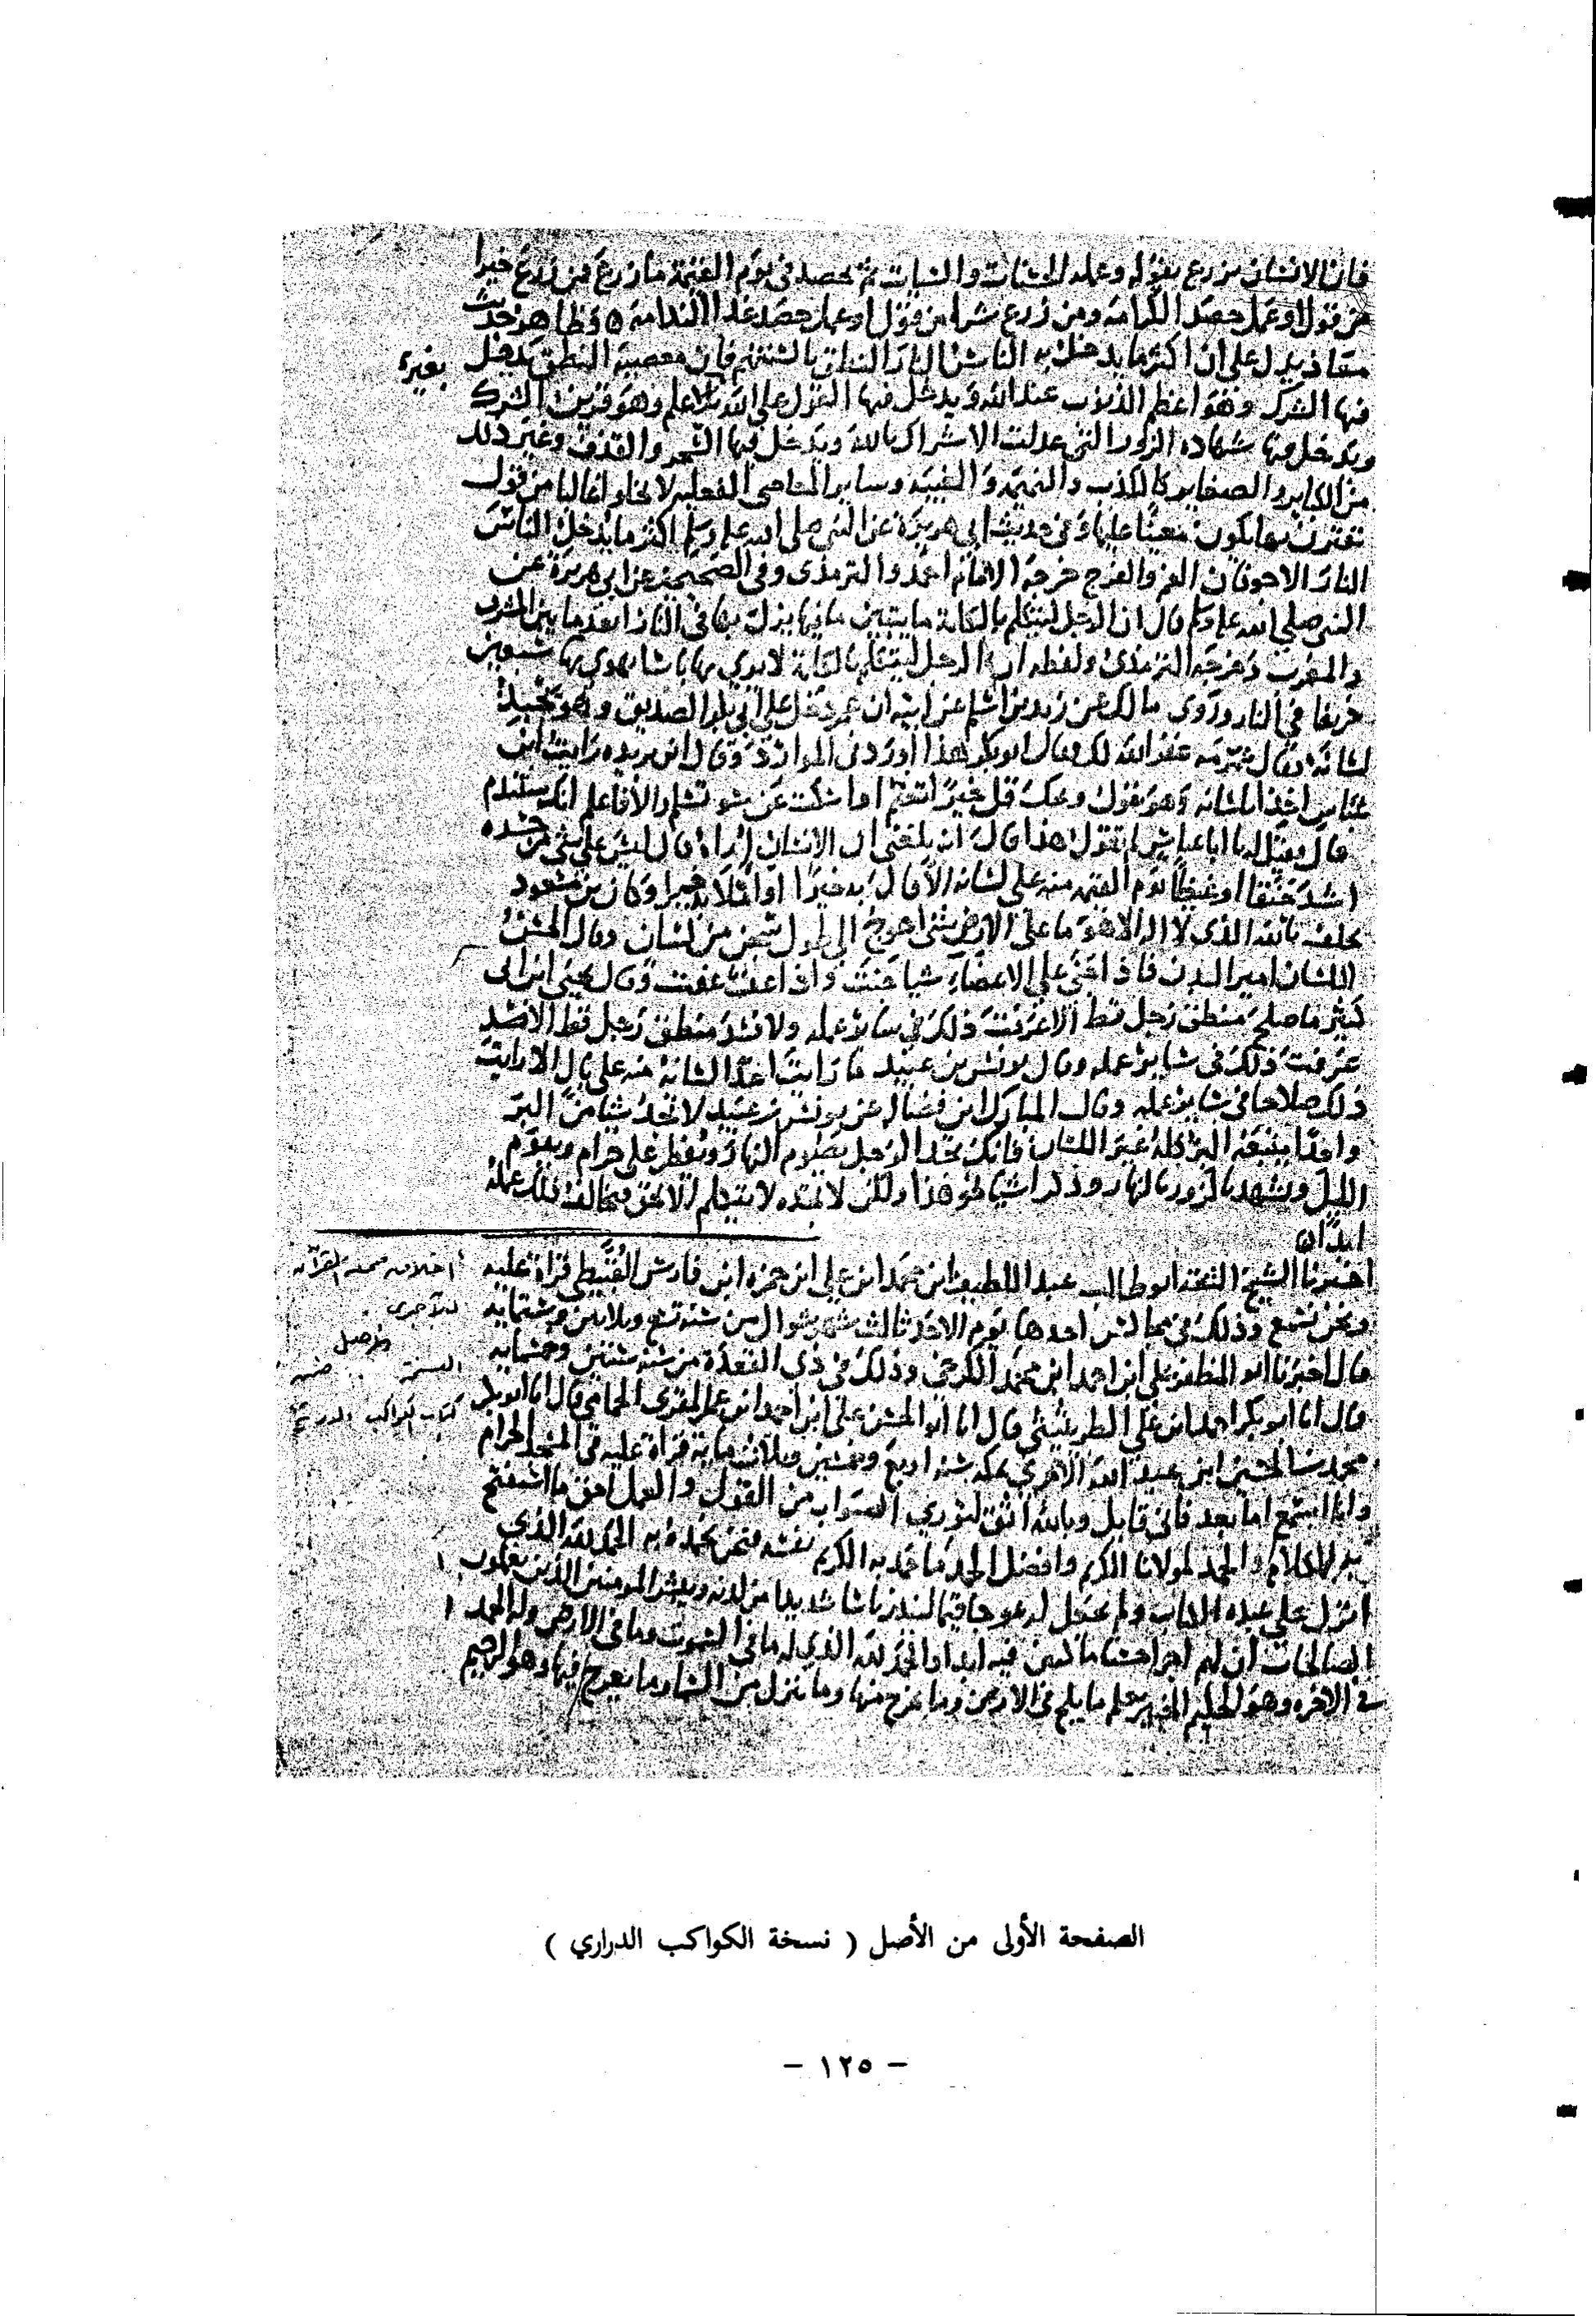 فان الانسان يزرع بقوله وعمله الحسنات والسيات ثم يحصد في يوم القيمة ما زرع فمن زرع خيرا
من قول او عمل حصد الكرامة ومن زرع شرا من قول او عمل حصد غدا الندامة ه وظاهر حديث
معاذ يدل على ان اكثر ما يدخل به الناس النار النطق بالسنتهم فان معصية النطق يدخل
فيها الشرك وهو اعظم الذنوب عند الله ويدخل فيها القول على الله بلا علم وهو قرين الشرك
بغيره
ويدخل فيها شهاده الزور التي عدلت الاشراك بالله ويدخل فيها السحر والقذف وغير ذلك
من الكباير والصغاير كالكذب والنميمة والغيبة وساير المعاصي الفعلية لا يخلوا غالبا من قول
يقترن بها يكون معينا عليها وفي حديث ابي هريرة عن النبي صلى الله عليه وسلم اكثر ما يدخل الناس
النار الاجوفان الفم والفرج خرجه الامام احمد والترمذى وفي الصحيحين عن ابي هريرة عن
النبي صلى الله عليه وسلم قال ان الرجل ليتكلم بالكلمة ما يتبين ما فيها يزل بها في النار ابعد ما بين المشرق
والمغرب وخرجه الترمذى ولفظه ان الرجل ليتكلم بالكلمة لا يرى بها باسا يهوي بها سبعين
خريفا في النار وروى مالك عن زيد بن اسلم عن ابيه ان عمر دخل على ابي بكر الصديق وهو يجبذ
لسانه فقال عمر مه غفر الله لك فقال ابو بكر هذا اوردني الموارد وقال ابن بريده رايت ابن
عباس اخذا بلسانه وهو يقول ويحك قل خيرا تغنم او اسكت عن سو تسلم والا فاعلم انك ستندم
قال فقيل له يا ابا عباس لم تقول هذا قال انه بلغني ان الانسان اراه قال ليس على شي من جسده
اشد حنقا او غيظا يوم القيمه منه على لسانه الا قال به خيرا او املا به خيرا وكان بن مسعود
يحلف بالله الذي لا اله الا هو ما على الارض شي احوج الى طول سجن من لسان وقال الحسن
اللسان امير البدن فاذا جنى على الاعضاء شيا جنت واذا عف عفت وقال يحيى ابن ابي
كثير ما صلح منطق رجل قط الا عرفت ذلك في ساير عمله ولا فسد منطق رجل قط الا فسد
عرفت ذلك في ساير عمله وقال يونس بن عبيد ما رايت احدا لسانه منه على بال الا رايت
ذلك صلاحا في ساير عمله وقال المبارك ابن فضالة عن يونس بن عبيد لا تجد شيا من البر
واحدا يتبعه البر كله غير اللسان فانك تجد الرجل يصوم النهار ويفطر على حرام ويقوم
الليل ويشهد بالزور بالنهار وذكر اشيا نحو هذا ولكن لا تجده لا يتكلم الا بحق فيخالف ذلك عمله
ابدا ه
اخبرنا الشيخ الثقة ابو طالب عبد اللطيف ابن محمد ابن علي ابن حمزه ابن فارس القبيطي قراة عليه
ونحن نسمع وذلك في مجالس احدها يوم الاحد ثالث شهر شوال من سنة تسع وثلاثين وستمايه
قال اخبرنا ابو المظفر علي ابن احمد ابن محمد الكرخي وذلك في ذي القعدة من سنة ستين وخمسمايه
قال انا ابو بكر احمد ابن علي الطريثيثي قال انا ابو الحسن علي ابن احمد ابن عمر المقري الحمامي قال انا ابو بكر
محمد بن الحسين ابن عبد الله الاجري بمكه سنة اربع وخمسين وثلاث ماية قراة عليه في المسجد الحرام
وانا اسمع اما بعد فاني قايل وبالله اثق لتوري الصواب من القول والعمل احق ما استفتح
به الكلام والحمد لمولانا الكريم وافضل الحمد ما حمد به الكريم نفسه فنحن نحمده به الحمد لله الذي
انزل على عبده الكتاب ولم يجعل له عوجا قيما لينذر باسا شديدا من لدنه ويبشر المومنين الذين يعملون
الصالحات ان لهم اجرا حسنا ماكثين فيه ابدا والحمد لله الذي له ما في السموت وما في الارض وله الحمد
في الاخره وهو الحكيم الخبير يعلم ما يلج في الارض وما يخرج منها وما ينزل من السماء وما يعرج فيها وهو الرحيم
أخلاق حملة القرآن
للآجرى
كتاب الكواكب
الصفحة الأولى من الأصل ( نسخة الكواكب الدراري )
- ١٢٥ -